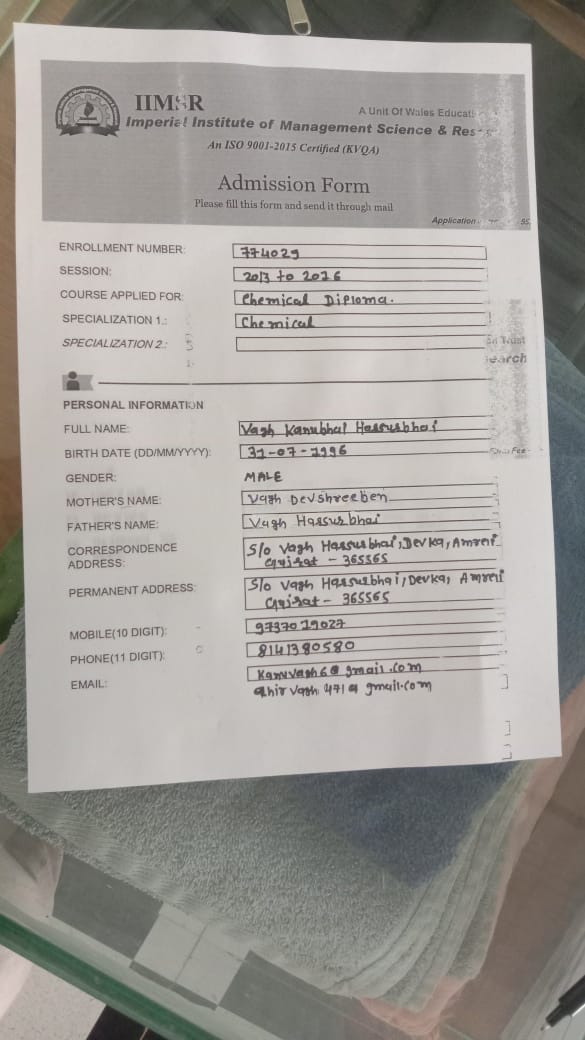 IIMSR
A Unit Of Wales Educati
Imperial Institute of Management Science & Res
An ISO 9001-2015 Certified (KVQA)
Admission Form
Please fill this form and send it through mail
Application
ENROLLMENT NUMBER: 774029
SESSION: 2013 to 2016
COURSE APPLIED FOR: Chemical Diploma.
SPECIALIZATION 1.: Chemical
SPECIALIZATION 2.:
Trust
search
PERSONAL INFORMATION
FULL NAME: Vagh Kanubhai Hassusbhai
BIRTH DATE (DD/MM/YYYY): 31-07-1996
GENDER: MALE
MOTHER'S NAME: Vagh Devshreeben
FATHER'S NAME: Vagh Hassusbhai
CORRESPONDENCE S/o Vagh Hassusbhai, Devka, Amreli
ADDRESS: Gujrat - 365565
PERMANENT ADDRESS: S/o Vagh Hassusbhai, Devka, Amreli
Gujrat - 365565
MOBILE(10 DIGIT): 9737019027
PHONE(11 DIGIT): 8141380580
EMAIL: Kanuvagh6@gmail.com
ahirvagh471@gmail.com